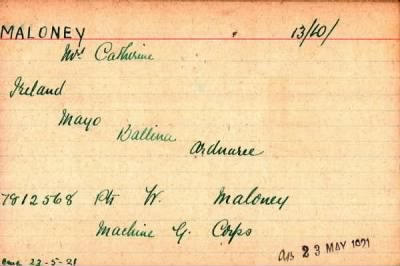 MALONEY 13/10/
Mrs Catherine
Ireland
Mayo
Ballina
Ardnaree
7812568 Pte W. Maloney
Machine G. Corps
23 MAY 1921
23-5-21